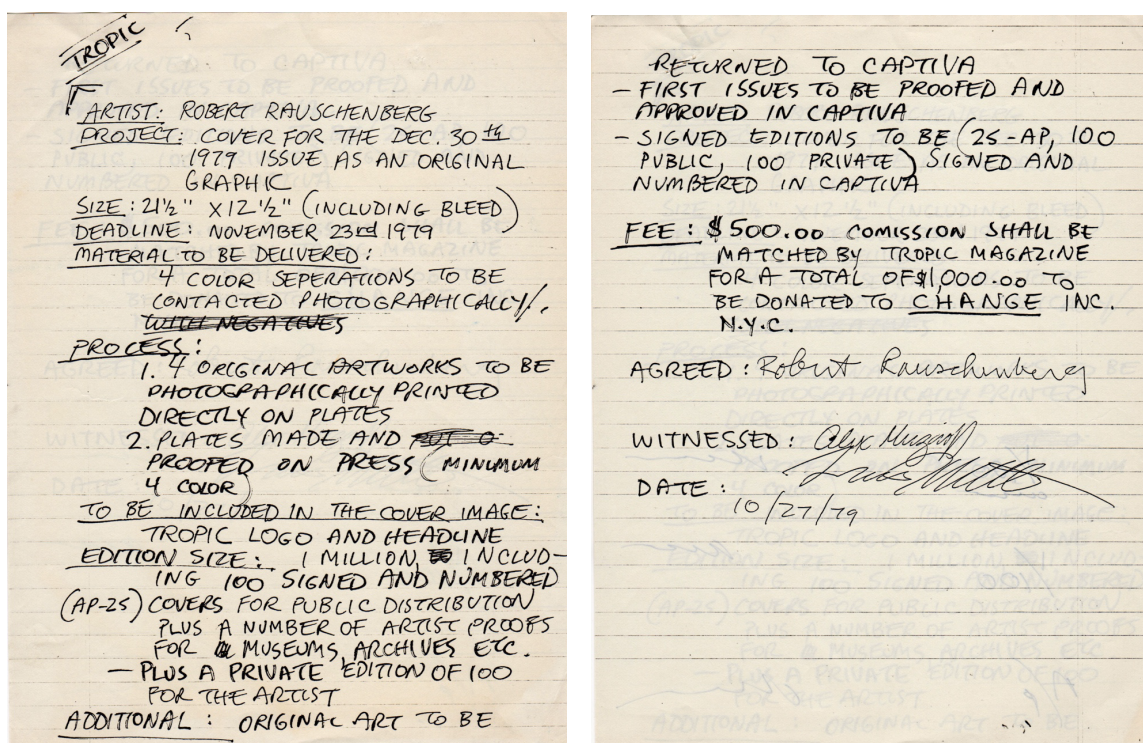 TROPIC
ARTIST: ROBERT RAUSCHENBERG
PROJECT: COVER FOR THE DEC. 30th
1979 ISSUE AS AN ORIGINAL
GRAPHIC
SIZE: 21½" X 12½" (INCLUDING BLEED)
DEADLINE: NOVEMBER 23rd 1979
MATERIAL TO BE DELIVERED:
4 COLOR SEPERATIONS TO BE
CONTACTED PHOTOGRAPHICALLY.
WITH NEGATIVES
PROCESS:
1. 4 ORIGINAL ARTWORKS TO BE
PHOTOGRAPHICALLY PRINTED
DIRECTLY ON PLATES
2. PLATES MADE AND
PROOFED ON PRESS (MINIMUM
4 COLOR)
TO BE INCLUDED IN THE COVER IMAGE:
TROPIC LOGO AND HEADLINE
EDITION SIZE: 1 MILLION INCLUD-
ING 100 SIGNED AND NUMBERED
(AP-25) COVERS FOR PUBLIC DISTRIBUTION
PLUS A NUMBER OF ARTIST PROOFS
FOR MUSEUMS, ARCHIVES ETC.
— PLUS A PRIVATE EDITION OF 100
FOR THE ARTIST
ADDITIONAL: ORIGINAL ART TO BE
RETURNED TO CAPTIVA
- FIRST ISSUES TO BE PROOFED AND
APPROVED IN CAPTIVA
- SIGNED EDITIONS TO BE (25-AP, 100
PUBLIC, 100 PRIVATE) SIGNED AND
NUMBERED IN CAPTIVA
FEE: $500.00 COMISSION SHALL BE
MATCHED BY TROPIC MAGAZINE
FOR A TOTAL OF $1,000.00 TO
BE DONATED TO CHANGE INC.
N.Y.C.
AGREED: Robert Rauschenberg
WITNESSED:
DATE:
10/27/79